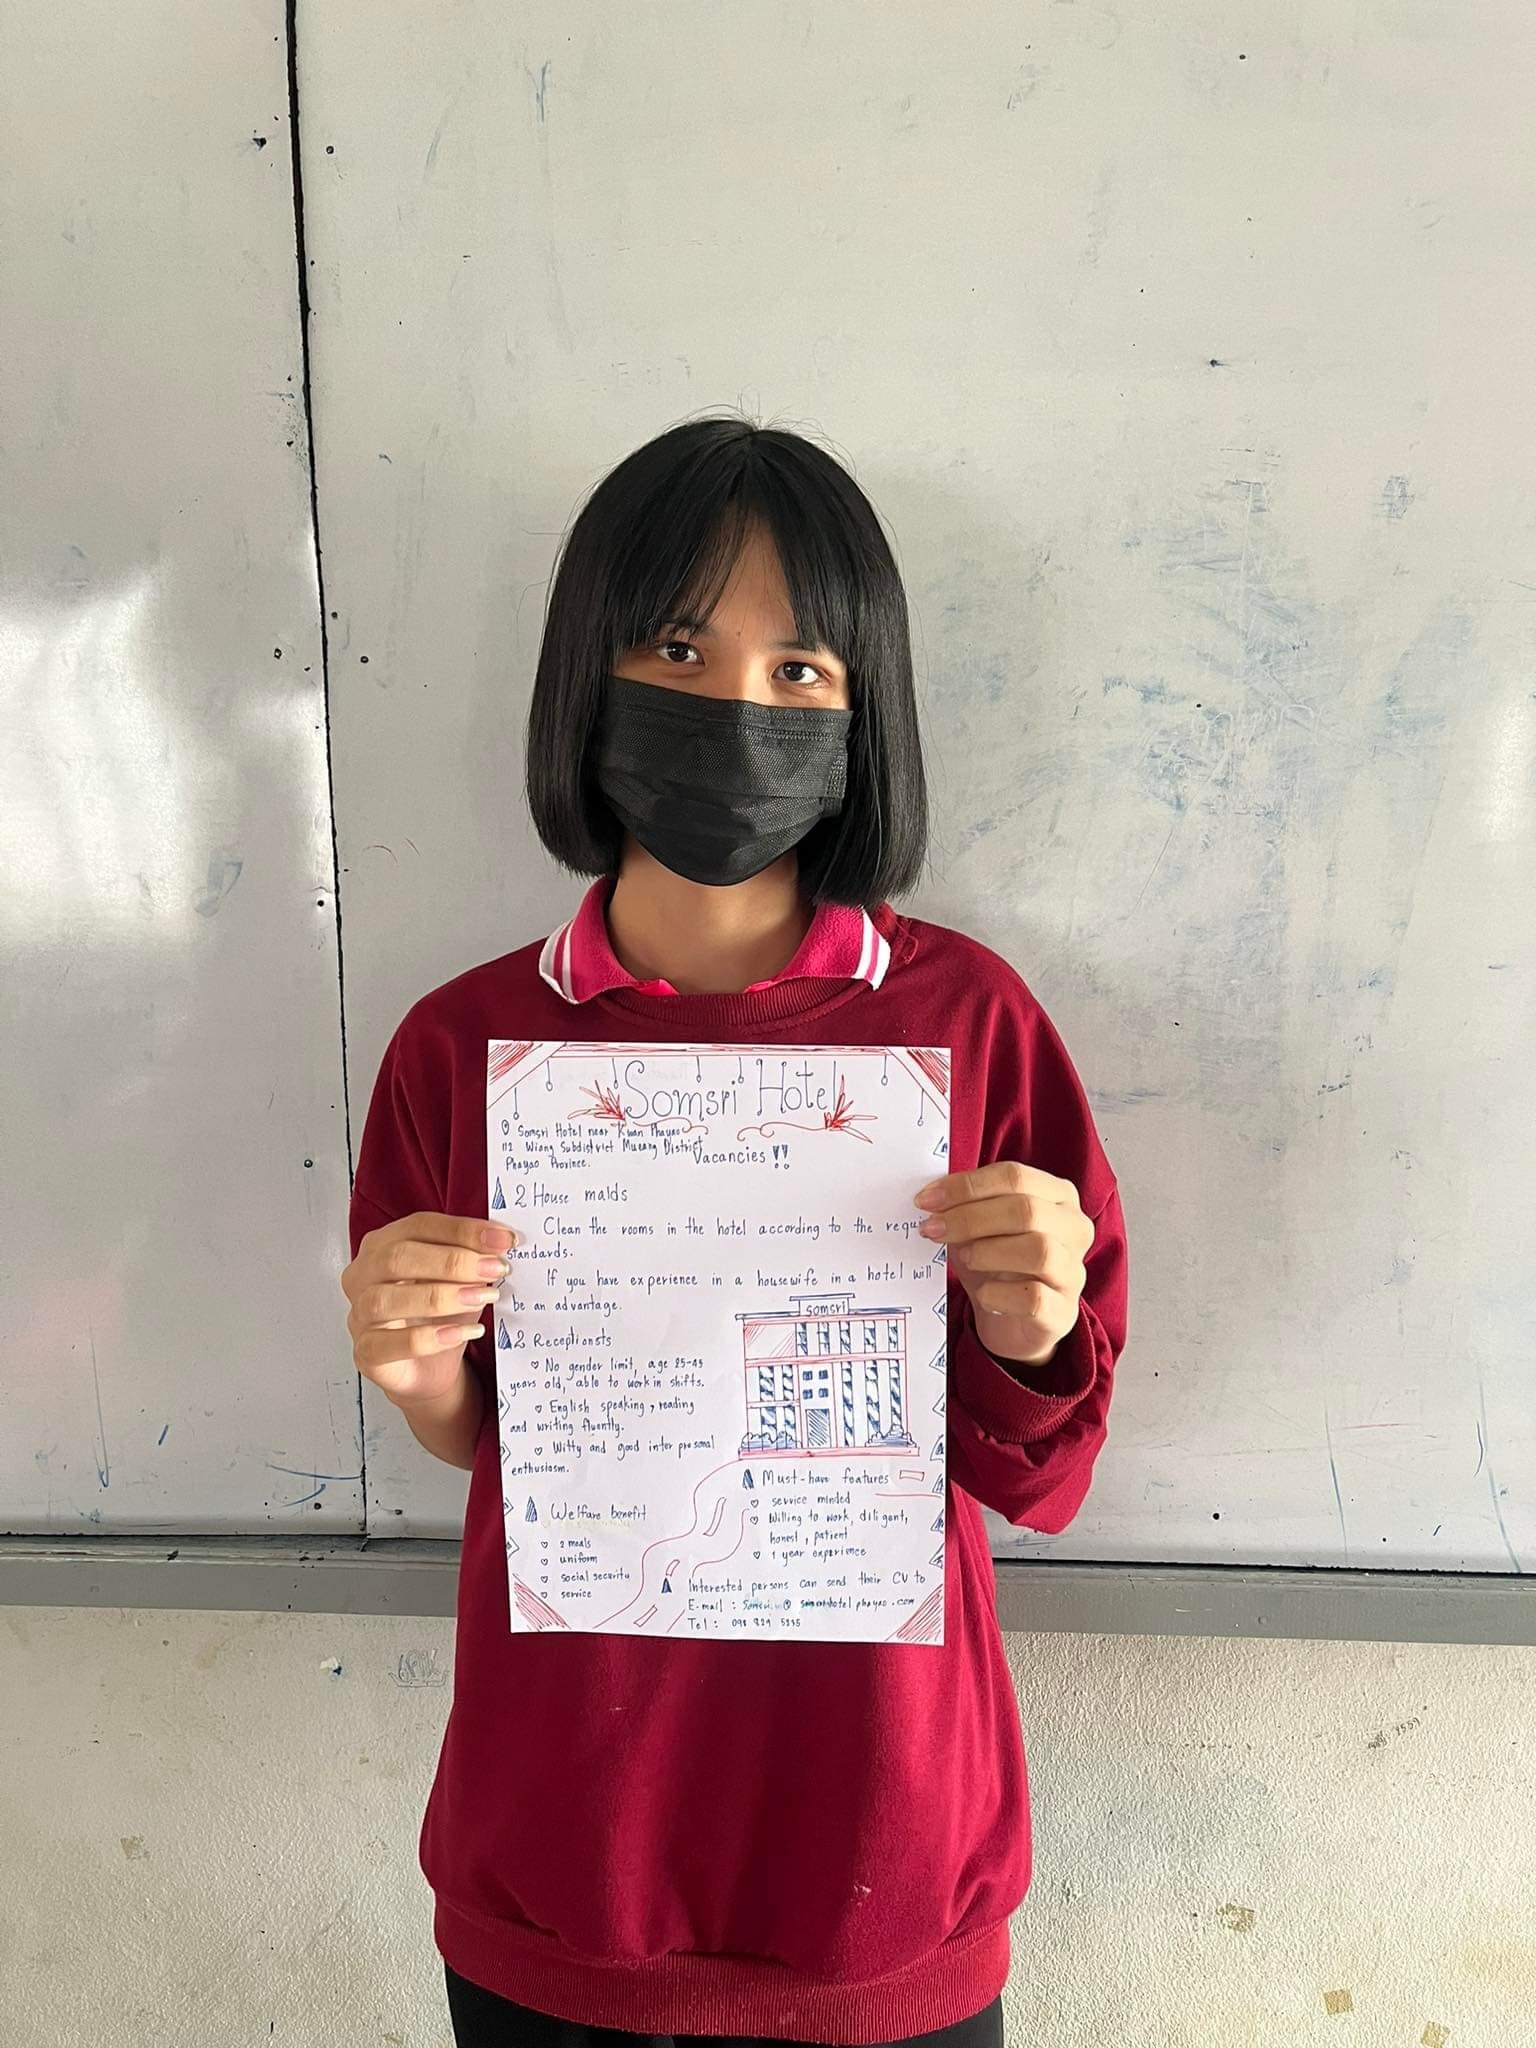 Somsri Hotel
Somsri Hotel near Kwan Phayao
112 Wiang Subdistrict Mueang District
Phayao Province.
Vacancies !!
2 House maids
Clean the rooms in the hotel according to the requi
standards.
If you have experience in a housewife in a hotel will
be an advantage.
somsri
2 Receptionsts
No gender limit, age 25-45
years old, able to work in shifts.
English speaking, reading
and writing fluently.
Witty and good inter presonal
enthusiasm.
Welfare benefit
2 meals
uniform
social security
service
Must-have features
service minded
Willing to work, diligent,
honest, patient
1 year experience
Interested persons can send their CV to
E-mail :
Tel :